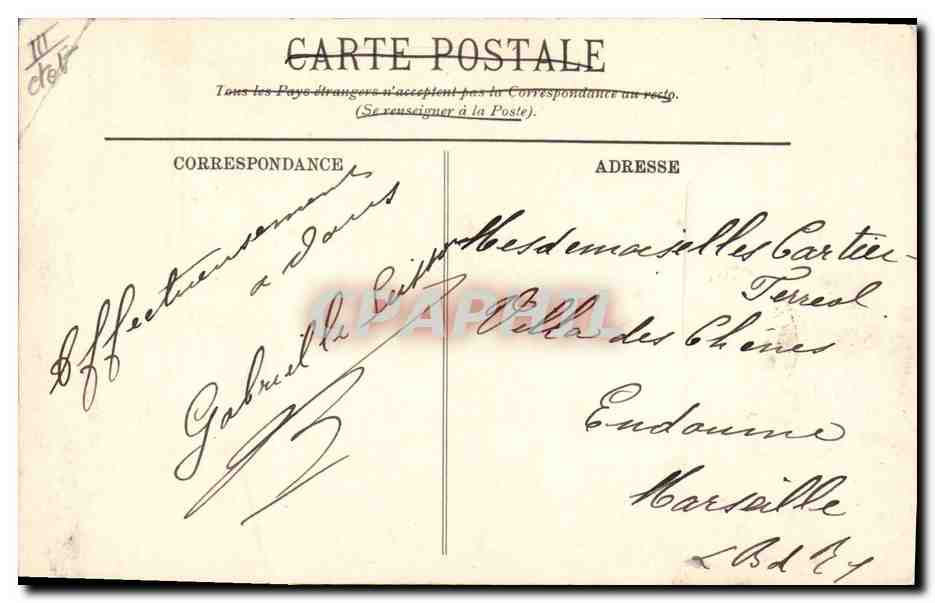 III
CARTE POSTALE
Tous les Pays étrangers n'acceptent pas la Correspondance au recto.
(Se renseigner à la Poste).
CORRESPONDANCE
Affectueusement
a vous
Gabrielle
ADRESSE
Mesdemoiselles Cartier-
Terreol
Villa des Chênes
Endoume
Marseille
B d R
CPAPHIL